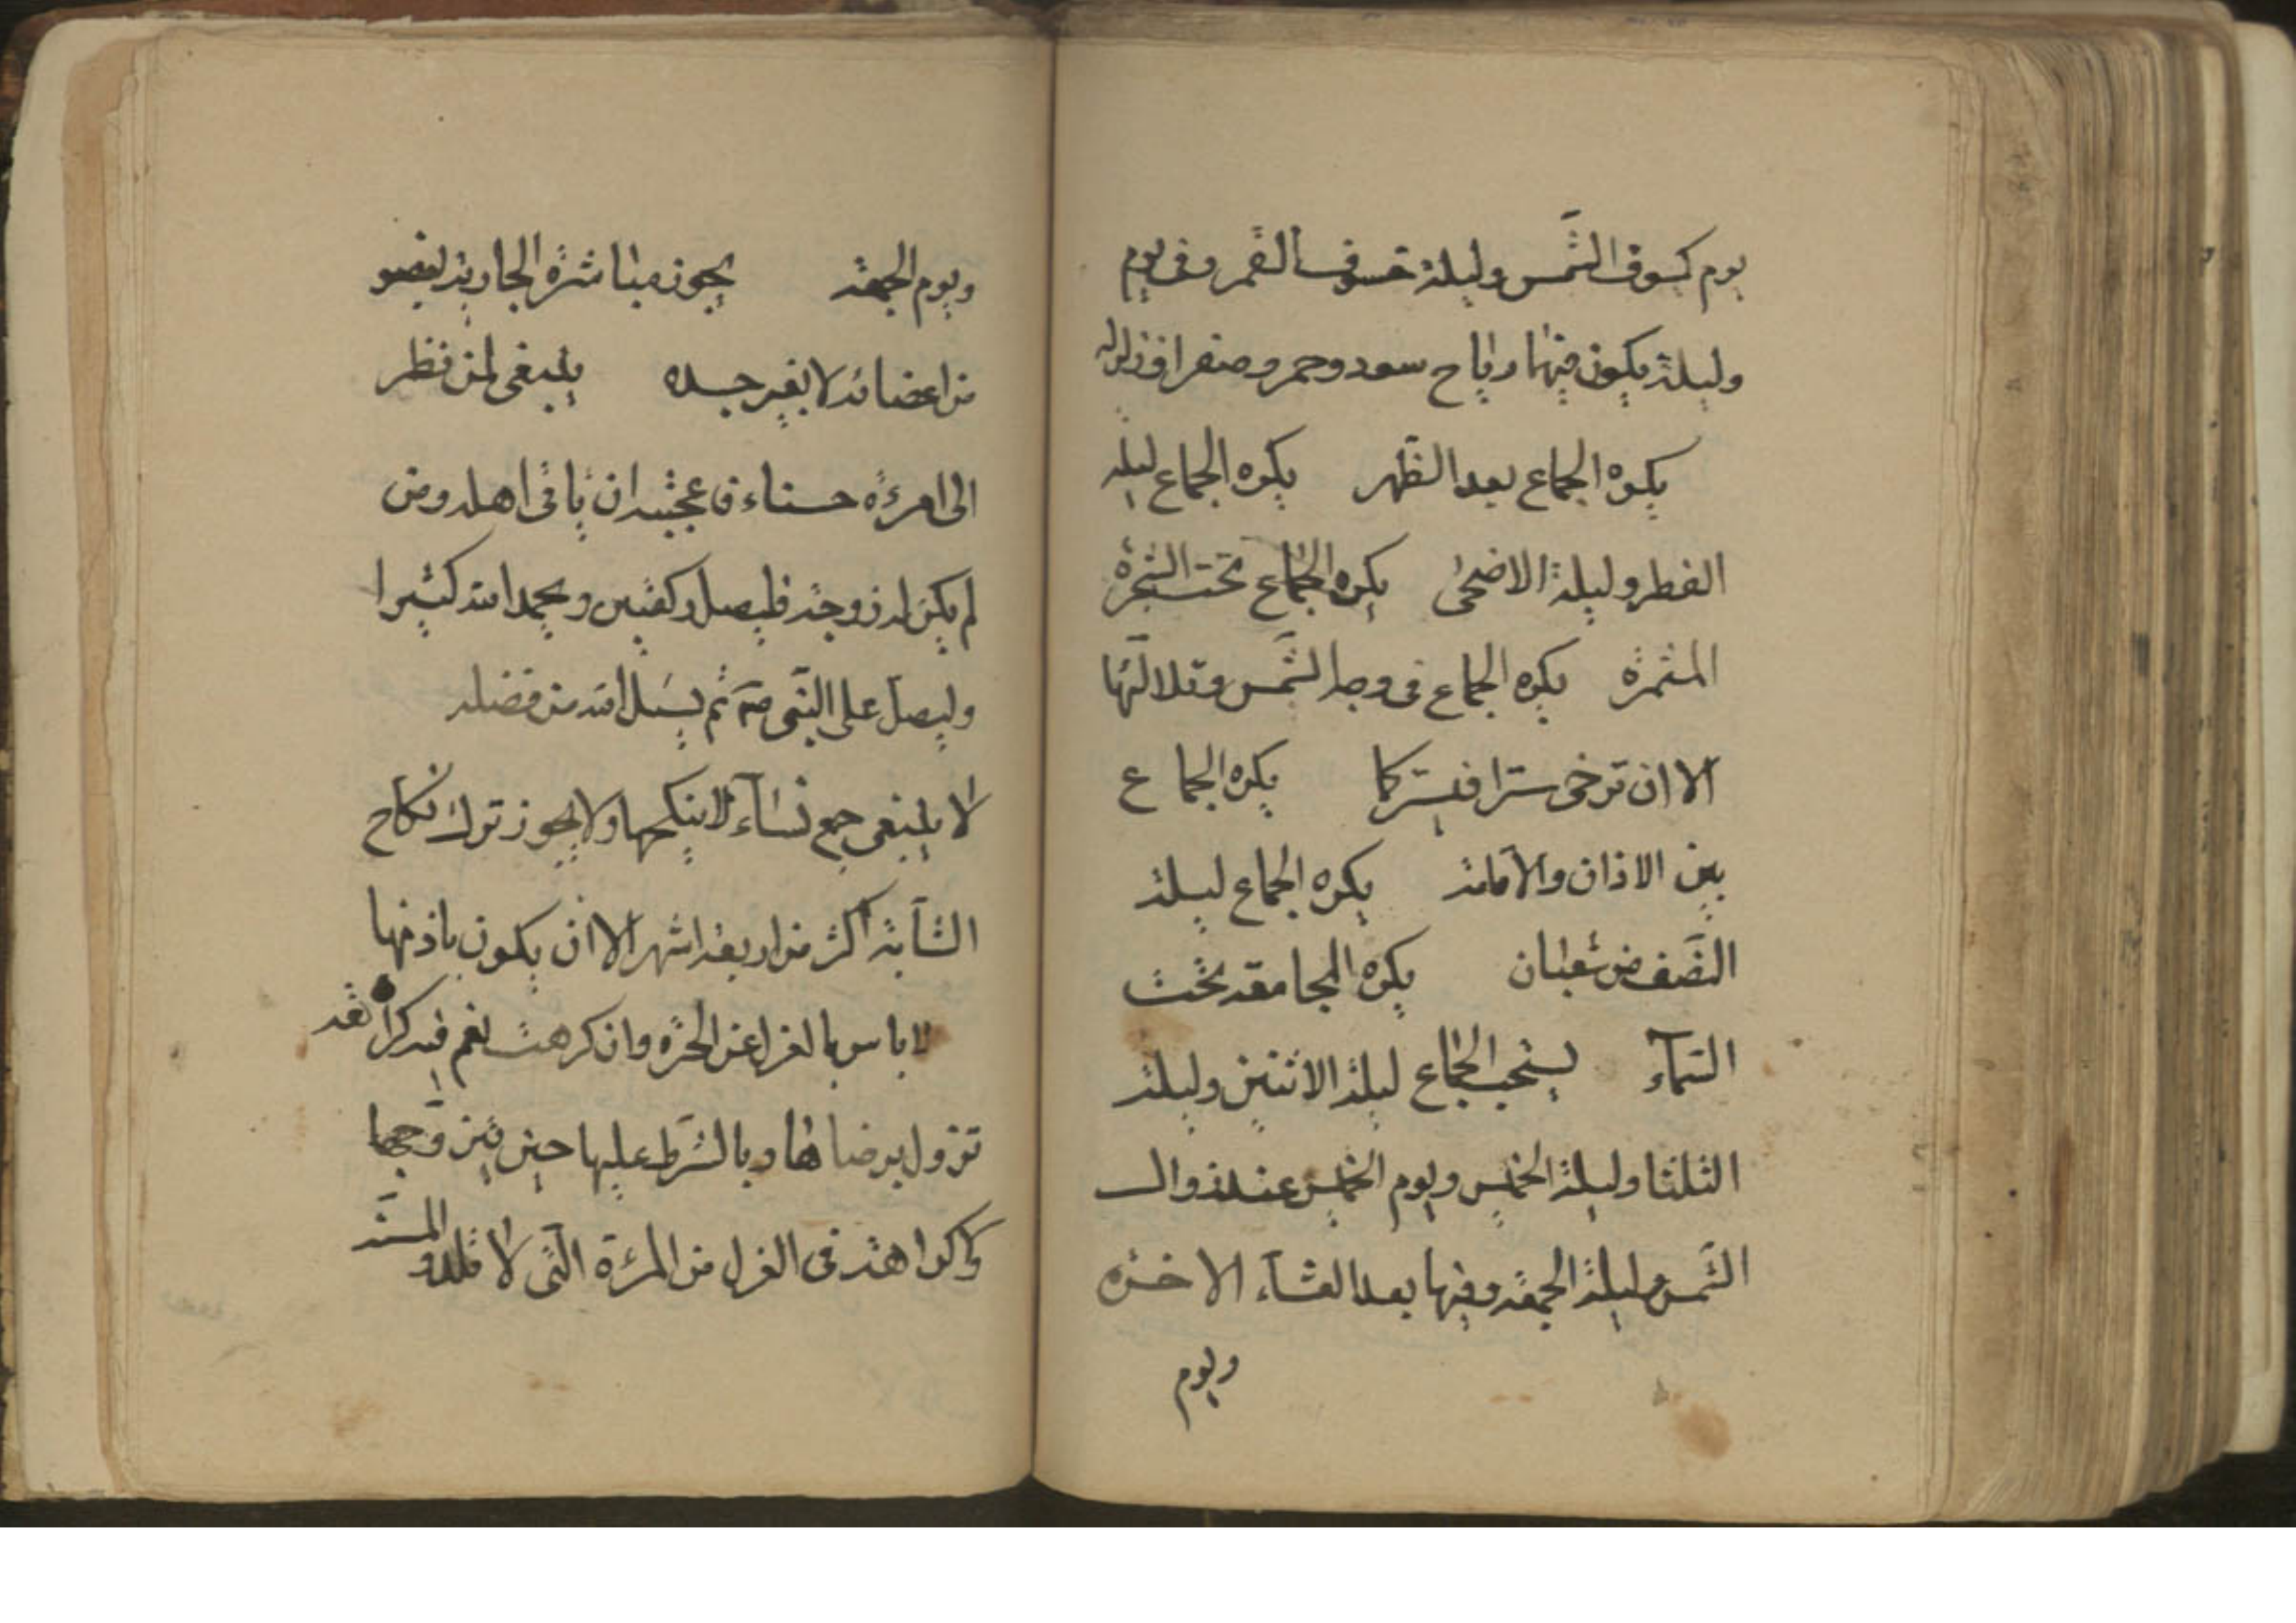 يوم كسوف الشمس وليلة خسوف القمر وفى يوم
وليلة يكون فيها رياح سود وحمر وصفر او زلزله
يكره الجماع بعد الظهر يكره الجماع ليلة
الفطر وليلة الاضحى يكره الجماع تحت الشجرة
المثمرة يكره الجماع فى وجه الشمس وتلالئها
الا ان ترخى سترا فيستركما يكره الجماع
بين الاذان والاقامة يكره الجماع ليلة
النصف من شعبان يكره المجامعة تحت
السمآء يستحب الجماع ليلة الاثنين وليلة
الثلثا وليلة الخميس ويوم الخميس عند زوال
الشمس وليلة الجمعة وفيها بعد العشآء الاخره
ويوم
ويوم الجمعة يجوز مباشرة الجارية بعضو
من اعضائه لا بغير جسده ينبغى لمن نظر
الى امرءة حسناء فاعجبته ان ياتى اهله ومن
لم يكن له زوجة فليصل ركعتين ويحمد الله كثيرا
وليصل على النبى صه ثم يسئل الله من فضله
لا ينبغى جمع نسآء لا ينكحها ولا يجوز ترك نكاح
الشآبة اكثر من اربعة اشهر الا ان يكون باذنها
لا باس بالعزل عن الحرة وان كرهت نعم فيه كراهة
تزول برضاها وبالشرط عليها حين يتزوجها
ولا كراهة فى العزل من المرءة التى لا تلد والمسنة